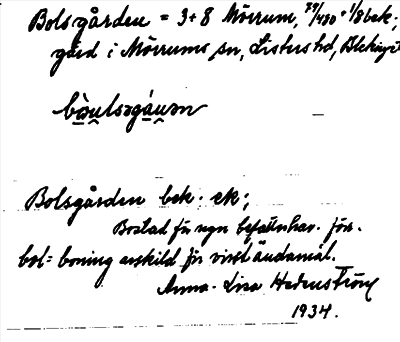 Bolsgården = 3+8 Mörrum, 79/480 + 1/8 bek.;
gård i Mörrums sn, Listers hd, Blekinge
Bolsgården bek. ek;
Bostad för
bol = boning enskild för visst ändamål.
Anna-Lisa Hedenström
1934.